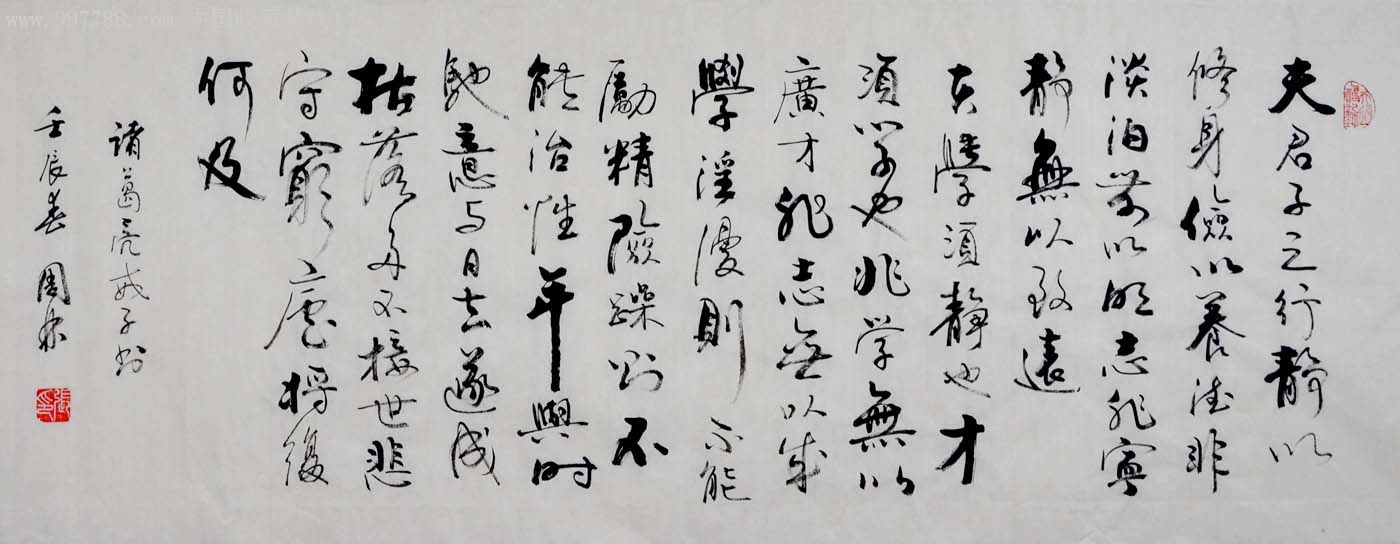 www.997788.com 中国收藏热线
夫君子之行靜以
修身儉以養德非
淡泊無以明志非寧
靜無以致遠
夫學須靜也才
須学也非学無以
廣才非志無以成
學淫漫則不能
勵精險躁則不
能治性年與时
馳意与日去遂成
枯落多不接世悲
守窮廬將復
何及
諸葛亮诫子书
壬辰春 周